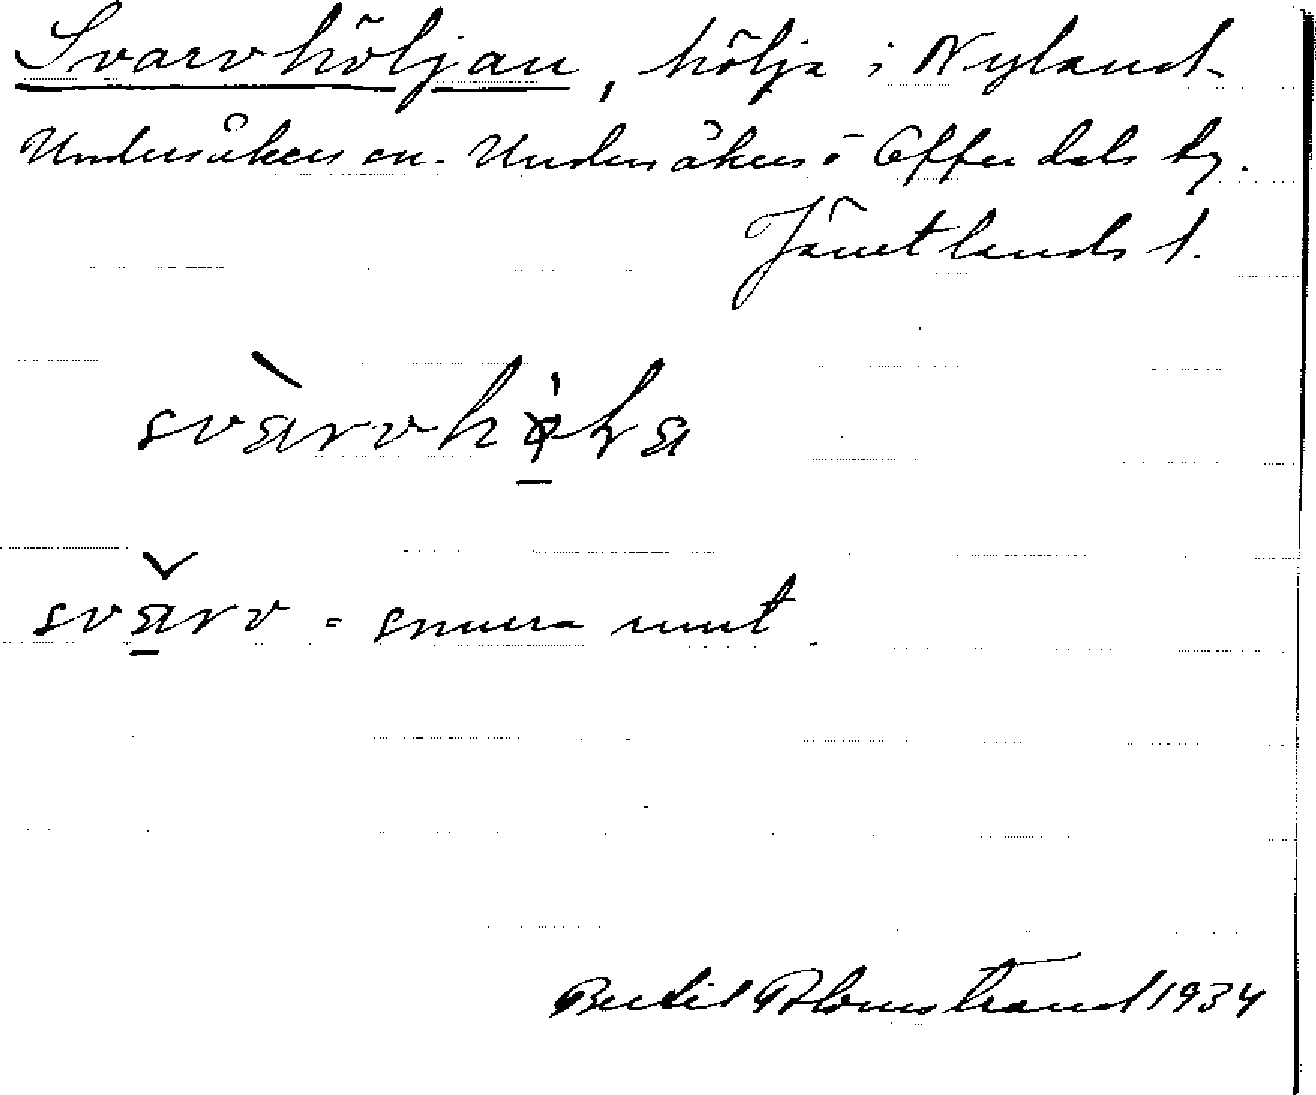 Svarvhöljan, hölja i Nyland
Undersåkers sn. Undersåkers o Offerdals tg.
Jämtlands l.
svàrvhø̀lɩa
svǎrv = snurra runt.
Bertil Blomstrand 1934